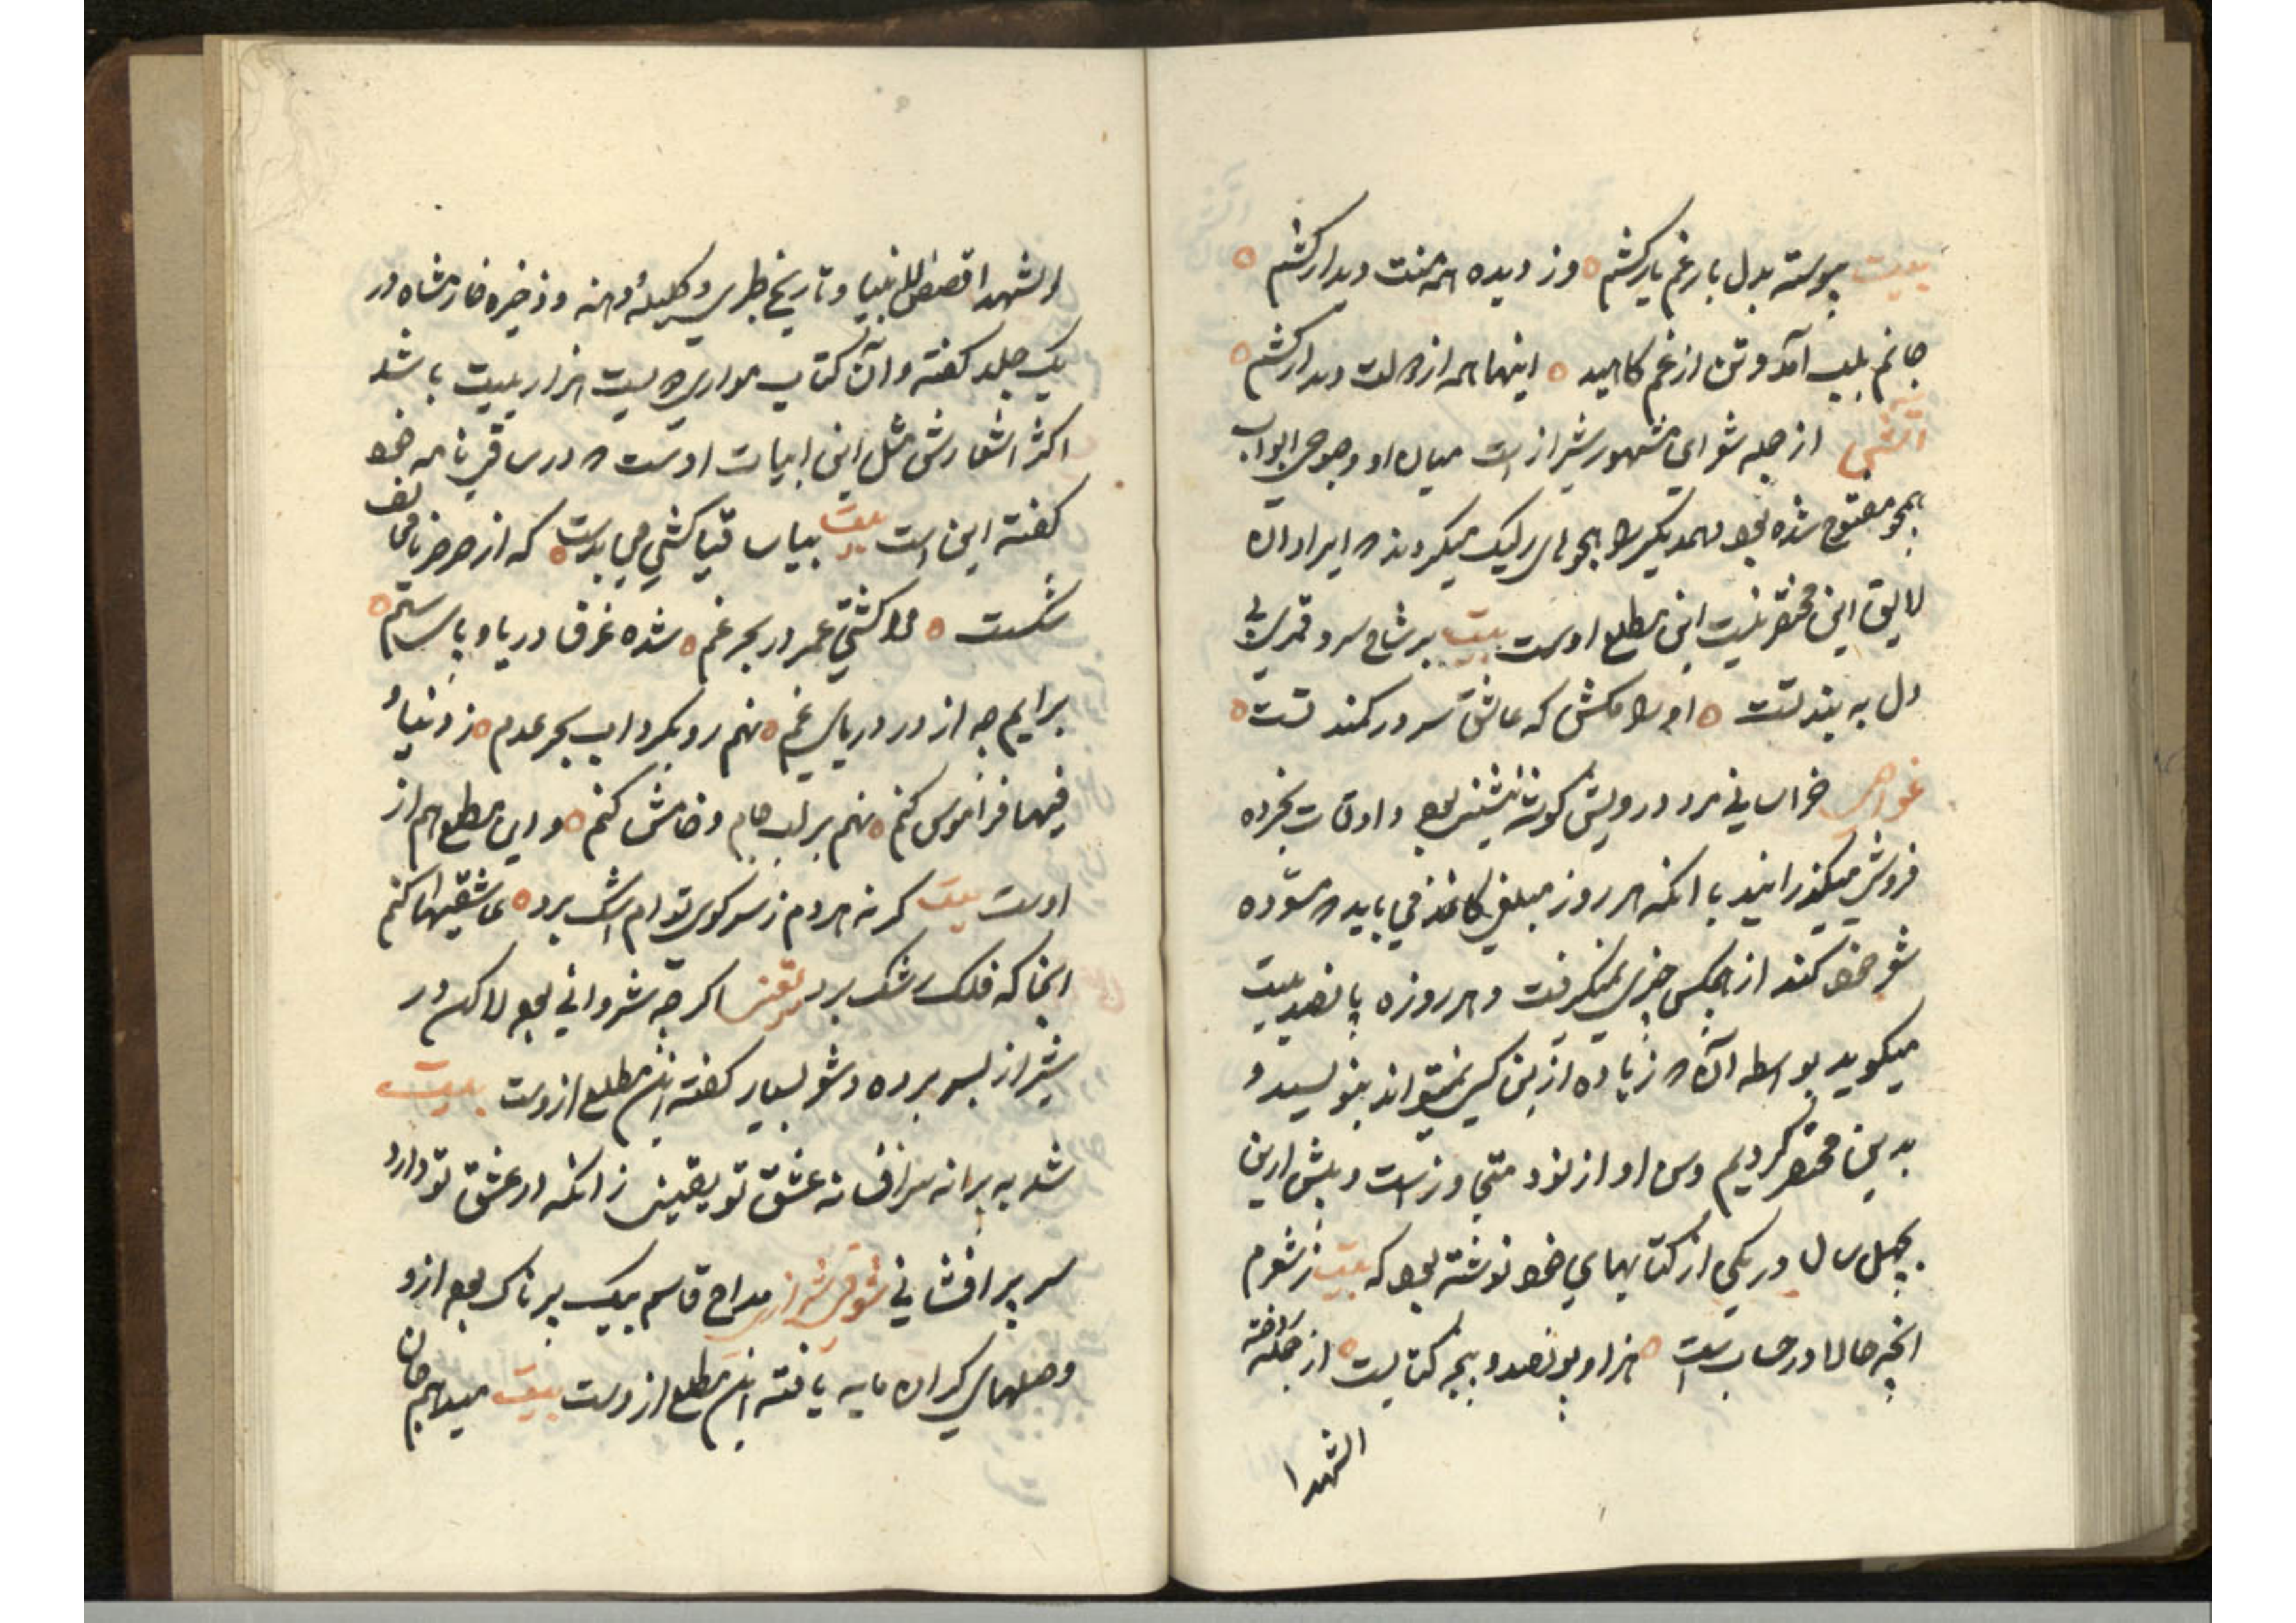 بیت پیوسته بدل بار غم یار کشم وز دیده همه منت دیدار کشم
جانم بلب آمد و تن از غم کاهید اینها همه از دولت دیدار کشم
آتشی از جمله شعرای مشهور شیراز است میان او و ابواب
هجو مفتوح شده بود و همدیگر را هجوهای رکیک میکردند که ایراد آن
لایق این مختصر نیست این مطلع اوست بیت بر شاخ سرو قمری بی
دل به بند تست او را مکش که عاشق سرو کمند تست
غواص خراسانی مرد درویش گوشه نشین بود و اوقات بخرده
فروشی میگذرانید با آنکه هر روز مبلغی کاغذ می باید که مسوده
شعر خود کند از هیچکس چیزی نمیگرفت و هر روزه پانصد بیت
میگوید بواسطه آن که زیاده ازین کسی نمیتواند بنویسد و
بدین مختصر کردیم و سن او از نود متجاوز است و پیش ازین
بچهل سال در یکی از کتابهای خود نوشته بود که بیت ز شعرم
آنچه حالا در حساب است هزار و نهصد و پنجه کتابست از جمله روضة
الشهدا
الشهدا قصص الانبیا و تاریخ طبری و کلیله و دمنه و ذخیره خوارزمشاه در
یک جلد گفته و آن کتاب موازی دویست هزار بیت باشد
اکثر اشعارش مثل این ابیات اوست که در ساقی نامه خود
گفته این است بیت بیا ساقیا کشتی می بدست که از صرصر
شکست مرا کشتی عمر در بحر غم شده غرق دریا و پای ستم
برایم چه از درد دریای غم نهم رو بگرداب بحر عدم ز دنیا و
فیها فراموش کنم نهم بر لب جام و خامش کنم و این مطلع هم از
اوست بیت گر نه هر دم ز سر کوی توام اشک برد عاشقیها کنم
آنجا که فلک رشک برد یقین اگر چه شروانی بود لاکن در
شیراز بسر برده و شعر بسیار گفته این مطلع ازوست بیت
شد به پروانه سرافسانه عشق تو یقین زانکه در عشق تو دارد
سر پر افشانی شوقی شیرازی مداح قاسم بیک پرناک بود ازو
وصلهای گران مایه یافته این مطلع ازوست بیت میدهم جان